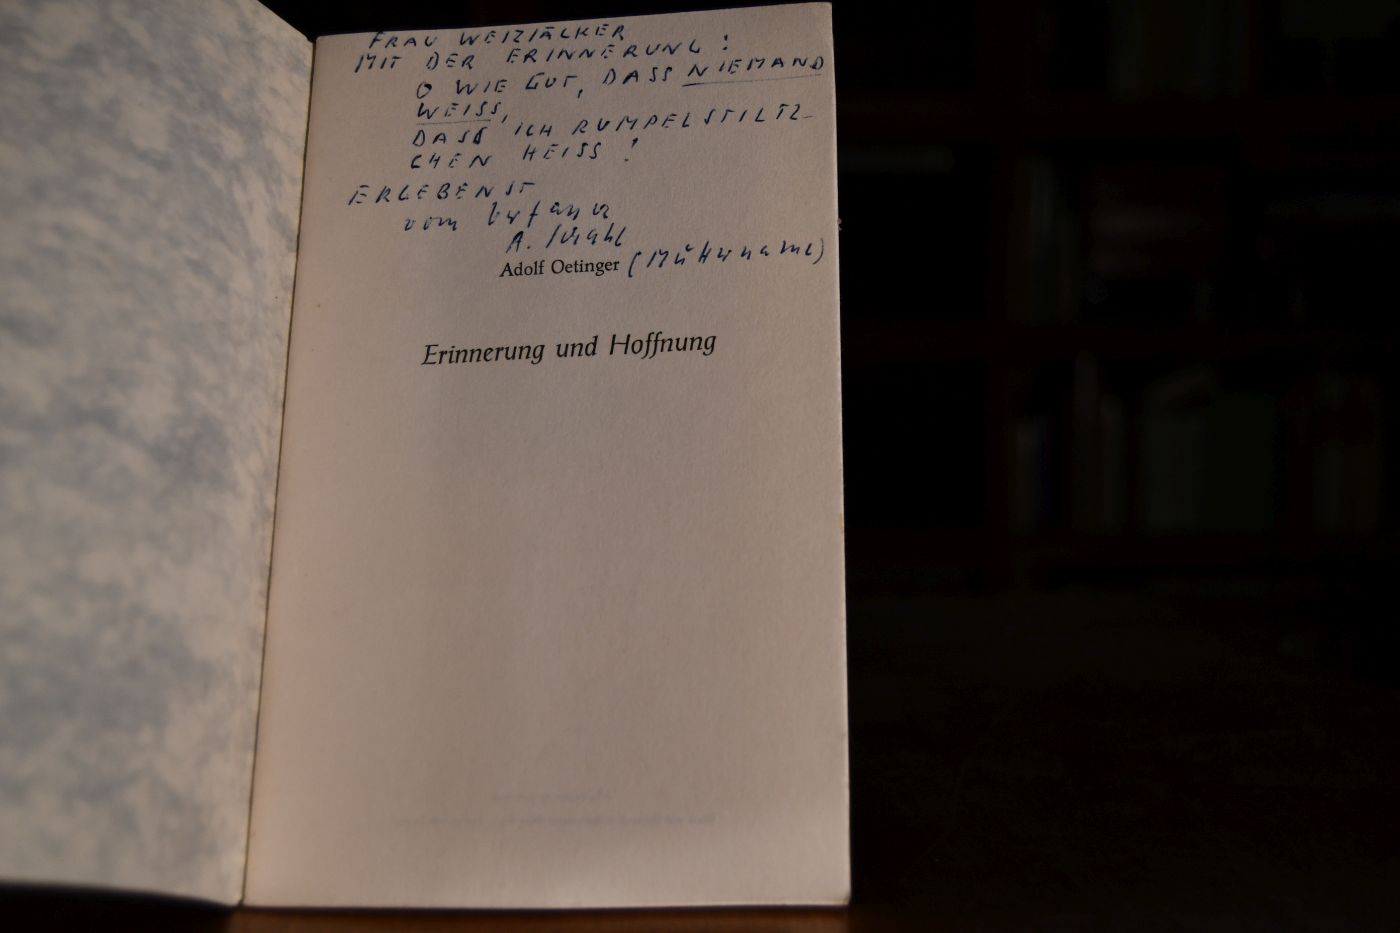 FRAU WEIZSÄCKER
MIT DER ERINNERUNG:
O WIE GUT, DASS NIEMAND
WEISS,
DASS ICH RUMPELSTILTZ-
CHEN HEISS!
ERGEBENST
vom Verfasser
A.
Adolf Oetinger (Müttername)
Erinnerung und Hoffnung